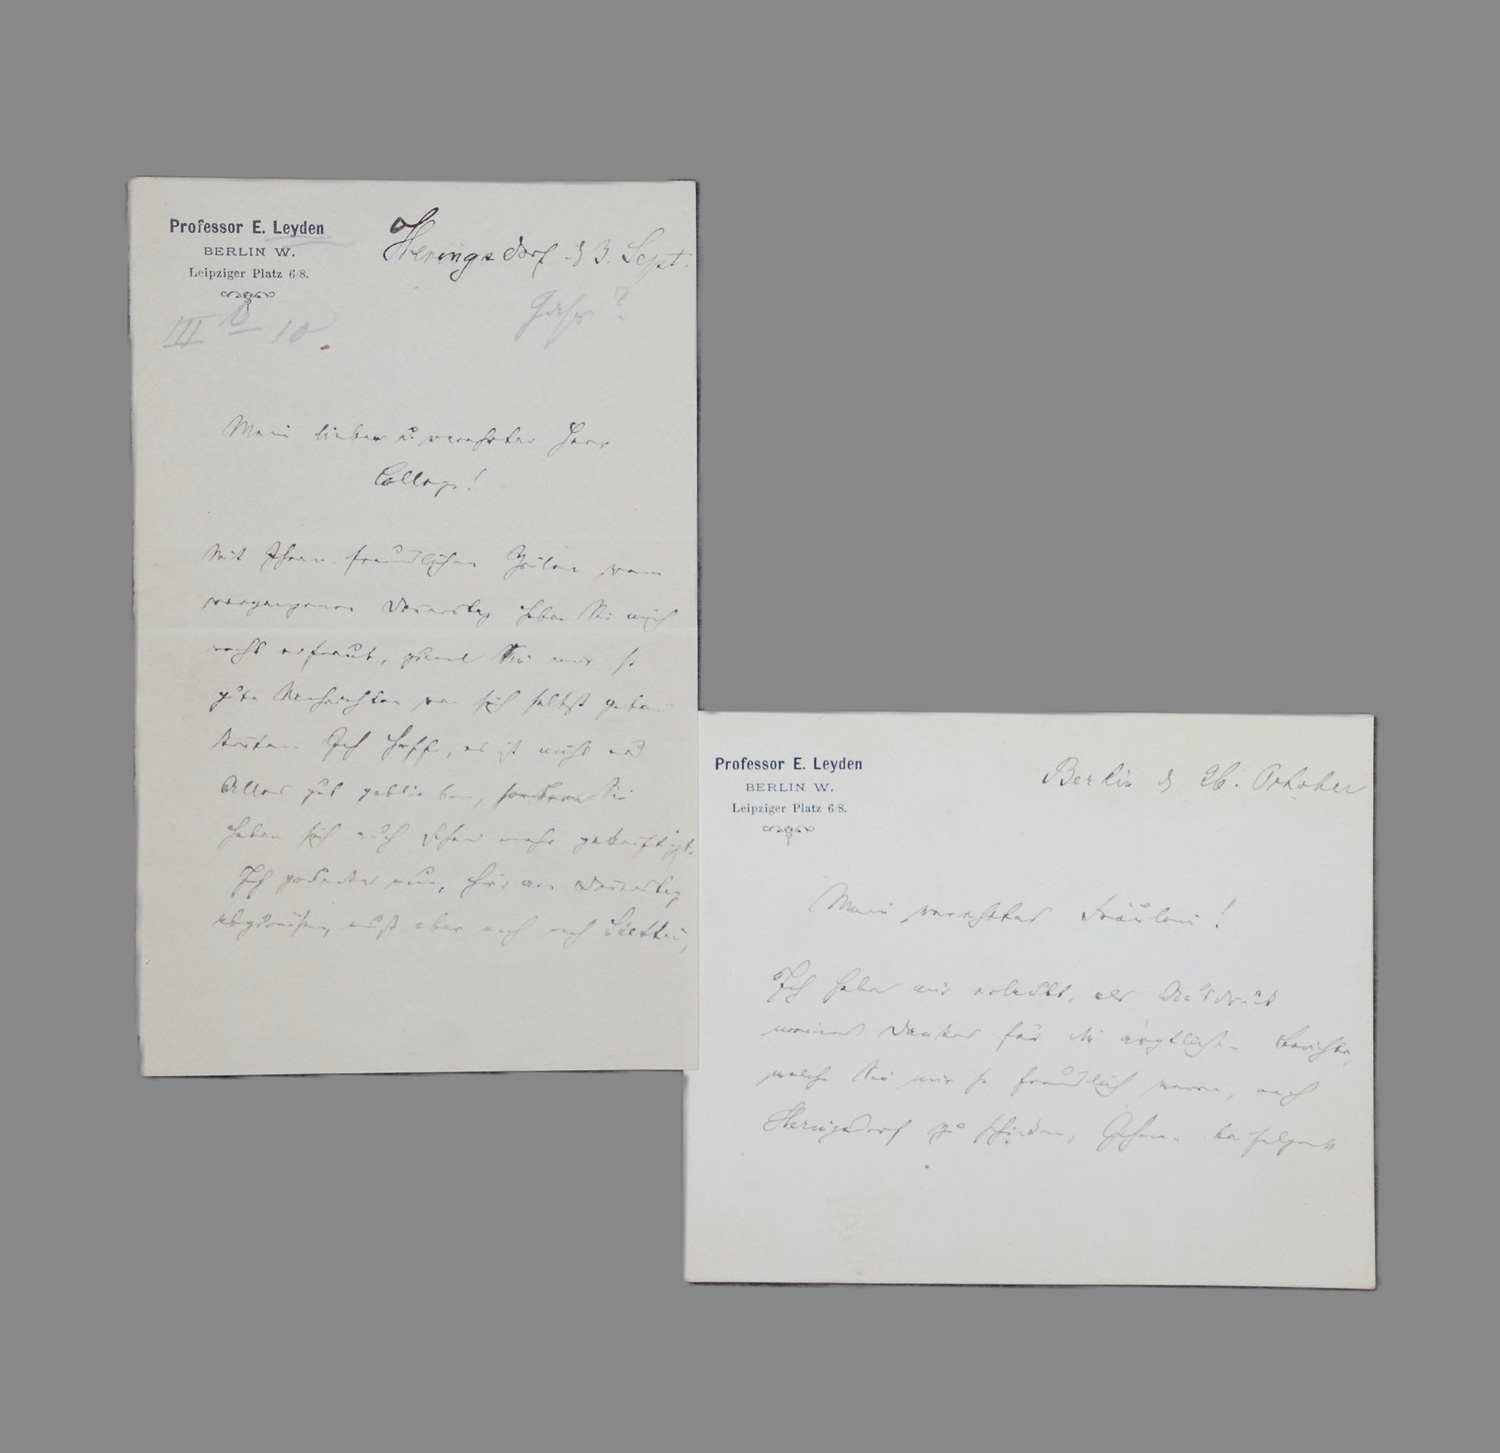 Professor E. Leyden
BERLIN W.
Leipziger Platz 6/8.
Heringsdorf d 3. Sept.
Jahr?
III 10
Mein lieber u. verehrter Herr
College!
Mit Ihren freundlichen Zeilen vom
vergangenen Donnerstag haben Sie mich
recht erfreut, zumal Sie mir so
gute Nachrichten von sich selbst geben
konnten. Ich hoffe, es ist nicht nur
Alles gut geblieben, sondern Sie
haben sich auch schon mehr gekräftigt.
Ich gedenke nun, hier am Donnerstag
abzureisen, muß aber noch nach Stettin,
Professor E. Leyden
BERLIN W.
Leipziger Platz 6/8.
Berlin d 26. October
Mein verehrtes Fräulein!
Ich habe mir erlaubt, als Ausdruck
meines Dankes für die ärztlichen Berichte,
welche Sie mir so freundlich waren, nach
Heringsdorf zu schicken, Ihnen beifolgend